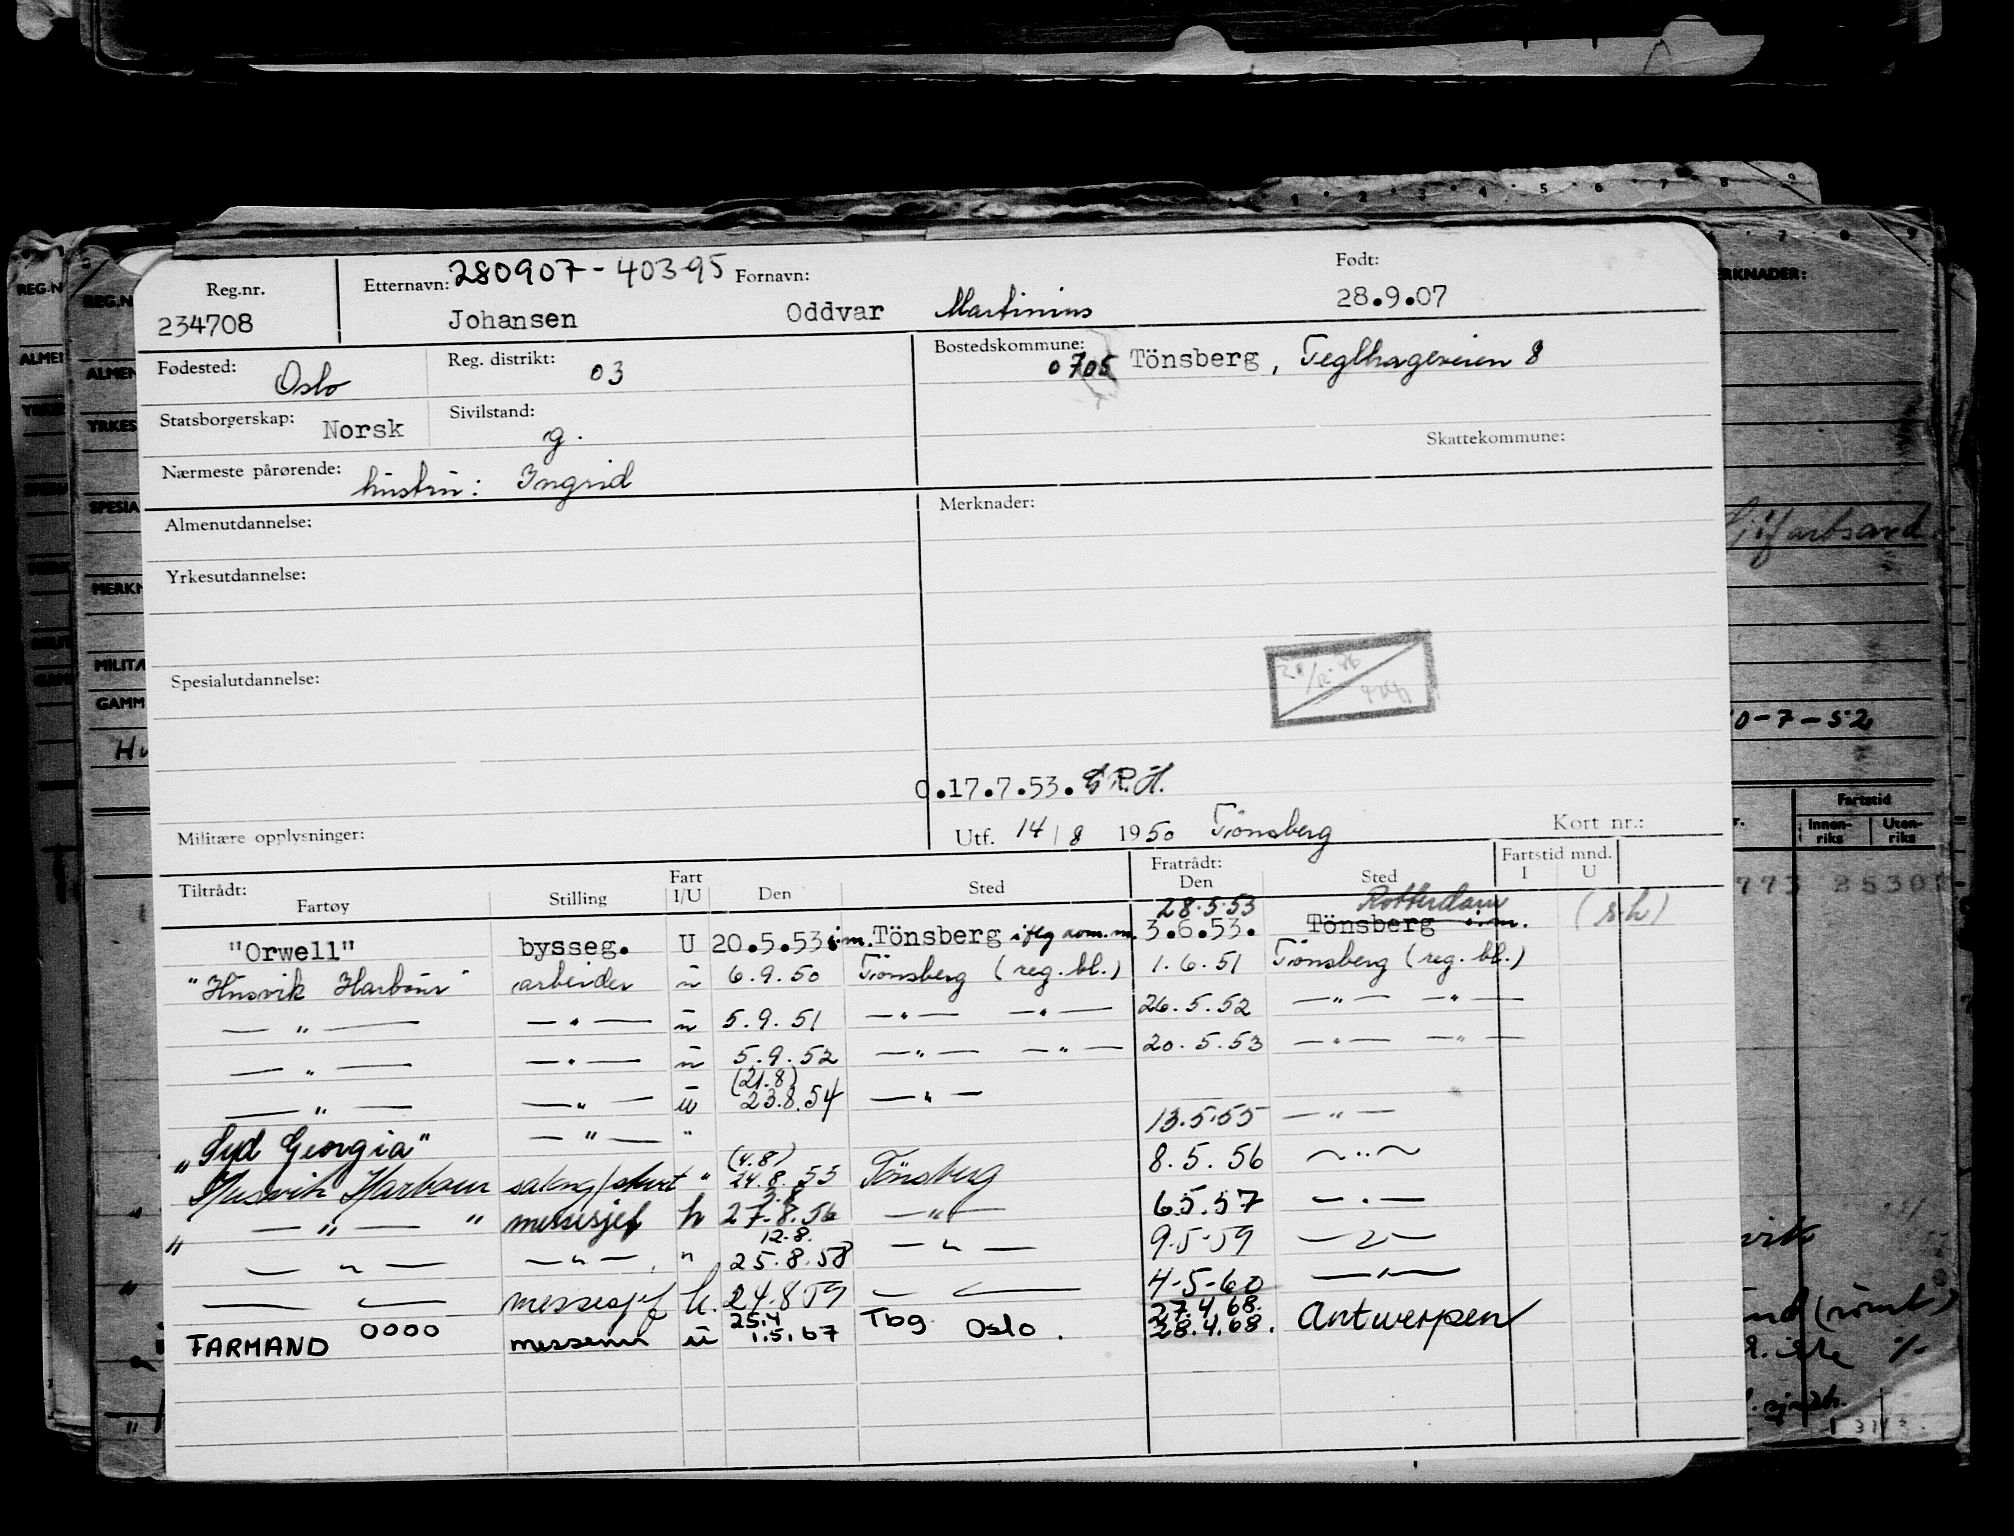 Reg.nr. Etternavn: 280907-40395 Fornavn: Født:
234708 Johansen Oddvar Martinius 28.9.07
Fødested: Oslo Reg. distrikt: 03 Bostedskommune: 0705 Tönsberg, Teglhageveien 8
Statsborgerskap: Norsk Sivilstand: g. Skattekommune:
Nærmeste pårørende: hustru: Ingrid
Almenutdannelse: Merknader:
Yrkesutdannelse:
Spesialutdannelse:
O.17.7.53. G.R.H.
Militære opplysninger: Utf. 14/8 1950 Tönsberg Kort nr.:
Tiltrådt: Fratrådt: Fartstid mnd.
Fartøy Stilling Fart I/U Den Sted Den Sted I U
28.5.53 Rotterdam
"Orwell" bysseg. U 20.5.53 i.m. Tönsberg iflg rom.m. 3.6.53. Tönsberg i.m. (s.h)
"Husvik Harbour" arbeider u 6.9.50 Tönsberg (reg.bl.) 1.6.51 Tönsberg (reg.bl.)
— " — — " — u 5.9.51 — " — — " — 26.5.52 — " — — " —
— " — — " — u 5.9.52 — " — — " — 20.5.53 — " — — " —
(21.8)
— " — — " — u 23.8.54 — " —
"Syd Georgia" — " — " 13.5.55 — " —
(4.8)
Husvik Harbour " 24.8.55 Tönsberg 8.5.56 — " —
3.8
" — " — " messesjef h 27.8.56 — " — 6.5.57 — " —
12.8.
— " — — " — " 25.8.58 — " — 9.5.59 — " —
— " — messesjef h. 24.8.59 — " — 4-5-60 — " —
25.4 27.4.68.
FARMAND OOOO messem u 1.5.67 Tbg Oslo. 28.4.68. Antwerpen
REG.N
ALMEN
YRKES
SPESIA
MERKN
MILITÆ
GAMM
RKNADER:
0-7-52
Fartstid
Innen-riks Uten-riks